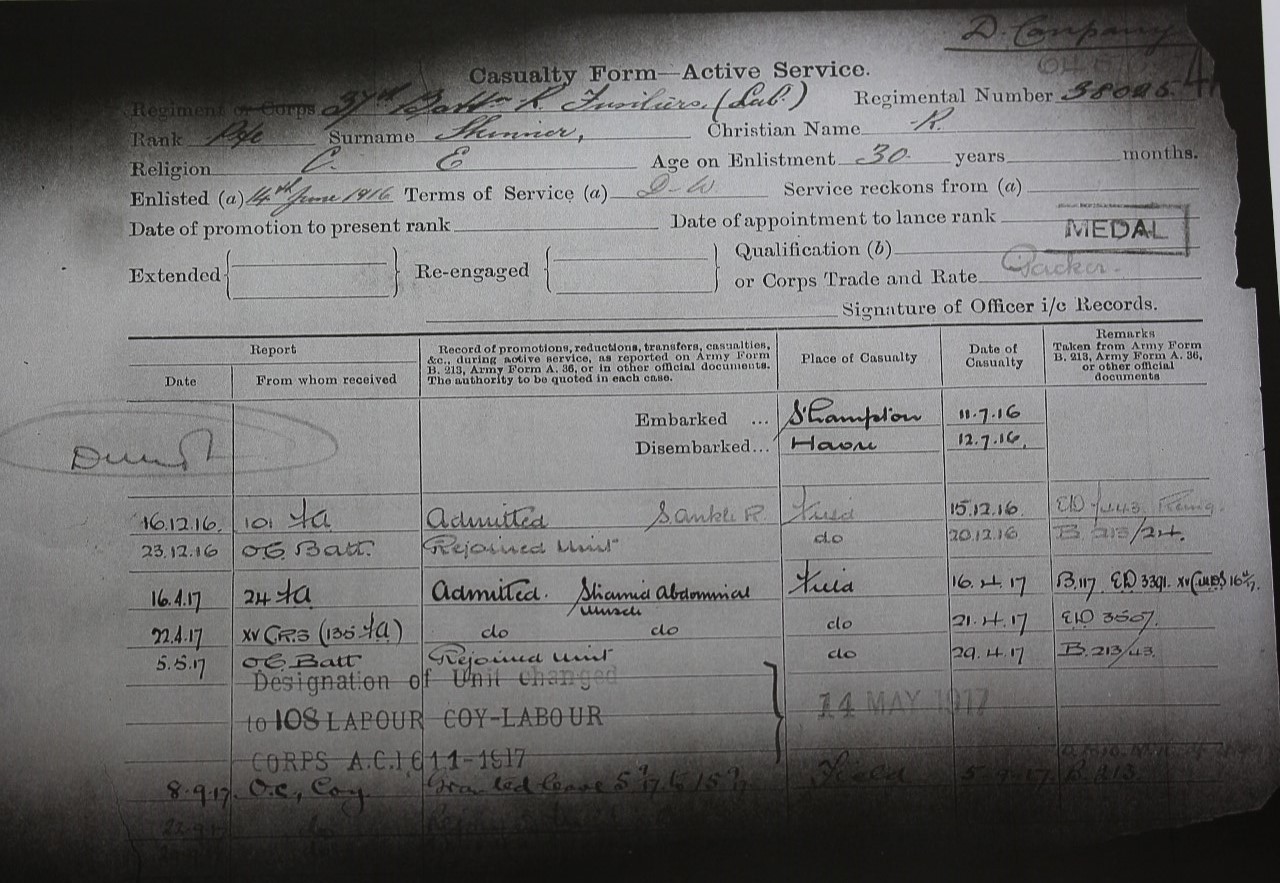 D. Company
Casualty Form—Active Service.
Regiment or Corps 37th Battn R. Fusiliers. (Lab.) Regimental Number 38095
Rank Pte Surname Skinner, Christian Name R.
Religion C. E Age on Enlistment 30 years months.
Enlisted (a) 14th June 1916 Terms of Service (a) D-W Service reckons from (a)
Date of promotion to present rank Date of appointment to lance rank
MEDAL
Extended Re-engaged Qualification (b)
or Corps Trade and Rate Packer.
Signature of Officer i/c Records.
Report Record of promotions, reductions, transfers, casualties, &c., during active service, as reported on Army Form B. 213, Army Form A. 36, or in other official documents. The authority to be quoted in each case. Place of Casualty Date of Casualty Remarks Taken from Army Form B. 213, Army Form A. 36, or other official documents
Date From whom received
Embarked ... S'hampton 11.7.16
Disembarked... Havre 12.7.16.
16.12.16. 101 FA Admitted Field 15.12.16.
23.12.16 O.C. Batt. Rejoined Unit do 20.12.16 B. 213/24.
16.4.17 24 FA Admitted. Abdominal Muscle Field 16.4.17 B.117. ED 3391.
22.4.17 XV CRS (135 FA) do do do 21.4.17 ED 3507.
5.5.17 O.C. Batt Rejoined Unit do 29.4.17 B.213/43.
Designation of Unit changed
to 108 LABOUR COY-LABOUR 14 MAY 1917
CORPS A.C.I 611-1917
8.9.17. O.C., Coy. Granted leave Field 5.9.17. B.213.